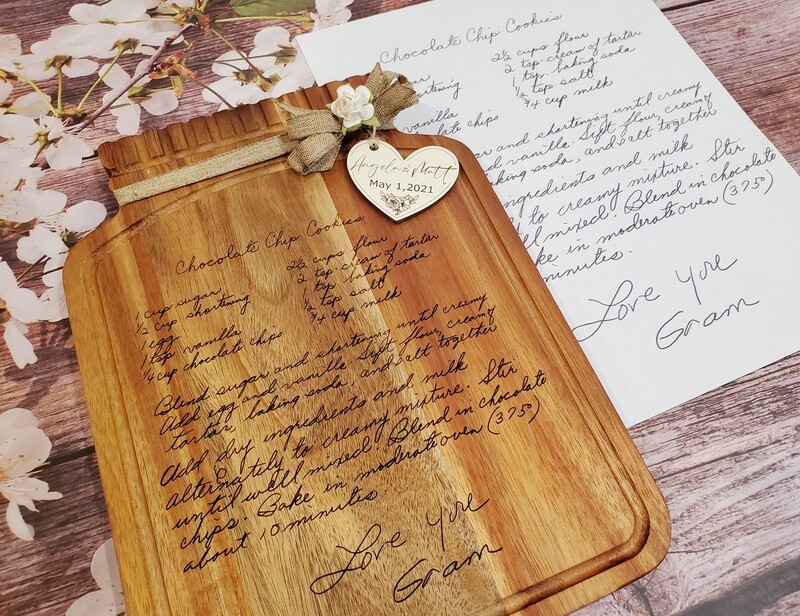 Chocolate Chip Cookies
2½ cups flour
2 tsp cream of tartar
1 tsp baking soda
½ tsp salt
¾ cup milk
shortening
vanilla
chips
and shortening until creamy
and vanilla. Sift flour, creamy
baking soda, and salt together
ingredients and milk
to creamy mixture. Stir
well mixed. Blend in chocolate
Bake in moderate oven (375)
minutes.
Love you
Gram
Angela & Matt
May 1, 2021
Chocolate Chip Cookies
1 cup sugar
½ cup shortening
1 egg
1 tsp vanilla
¼ cup chocolate chips
2½ cups flour
2 tsp cream of tartar
1 tsp baking soda
½ tsp salt
¾ cup milk
Blend sugar and shortening until creamy
Add egg and vanilla. Sift flour, creamy
tartar, baking soda, and salt together
Add dry ingredients and milk
alternately to creamy mixture. Stir
until well mixed. Blend in chocolate
chips. Bake in moderate oven (375)
about 10 minutes.
Love you
Gram